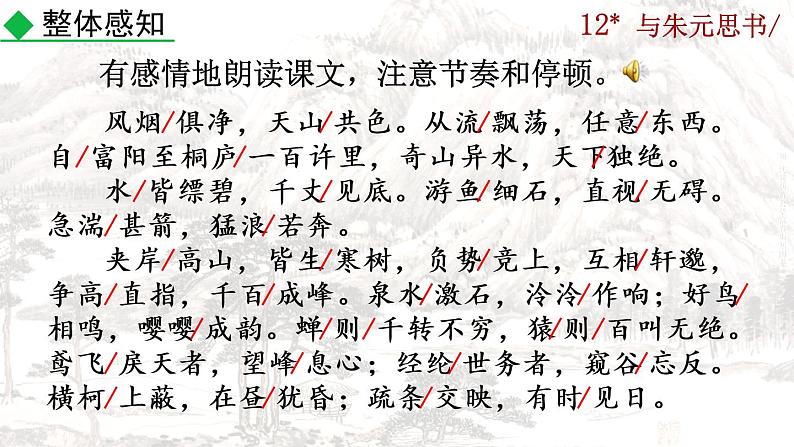 整体感知
12* 与朱元思书/
有感情地朗读课文，注意节奏和停顿。
风烟/俱净，天山/共色。从流/飘荡，任意/东西。
自/富阳至桐庐/一百许里，奇山异水，天下/独绝。
水/皆缥碧，千丈/见底。游鱼/细石，直视/无碍。
急湍/甚箭，猛浪/若奔。
夹岸/高山，皆生/寒树，负势/竞上，互相/轩邈，
争高/直指，千百/成峰。泉水/激石，泠泠/作响；好鸟/
相鸣，嘤嘤/成韵。蝉/则/千转不穷，猿/则/百叫无绝。
鸢飞/戾天者，望峰/息心；经纶/世务者，窥谷/忘反。
横柯/上蔽，在昼/犹昏；疏条/交映，有时/见日。